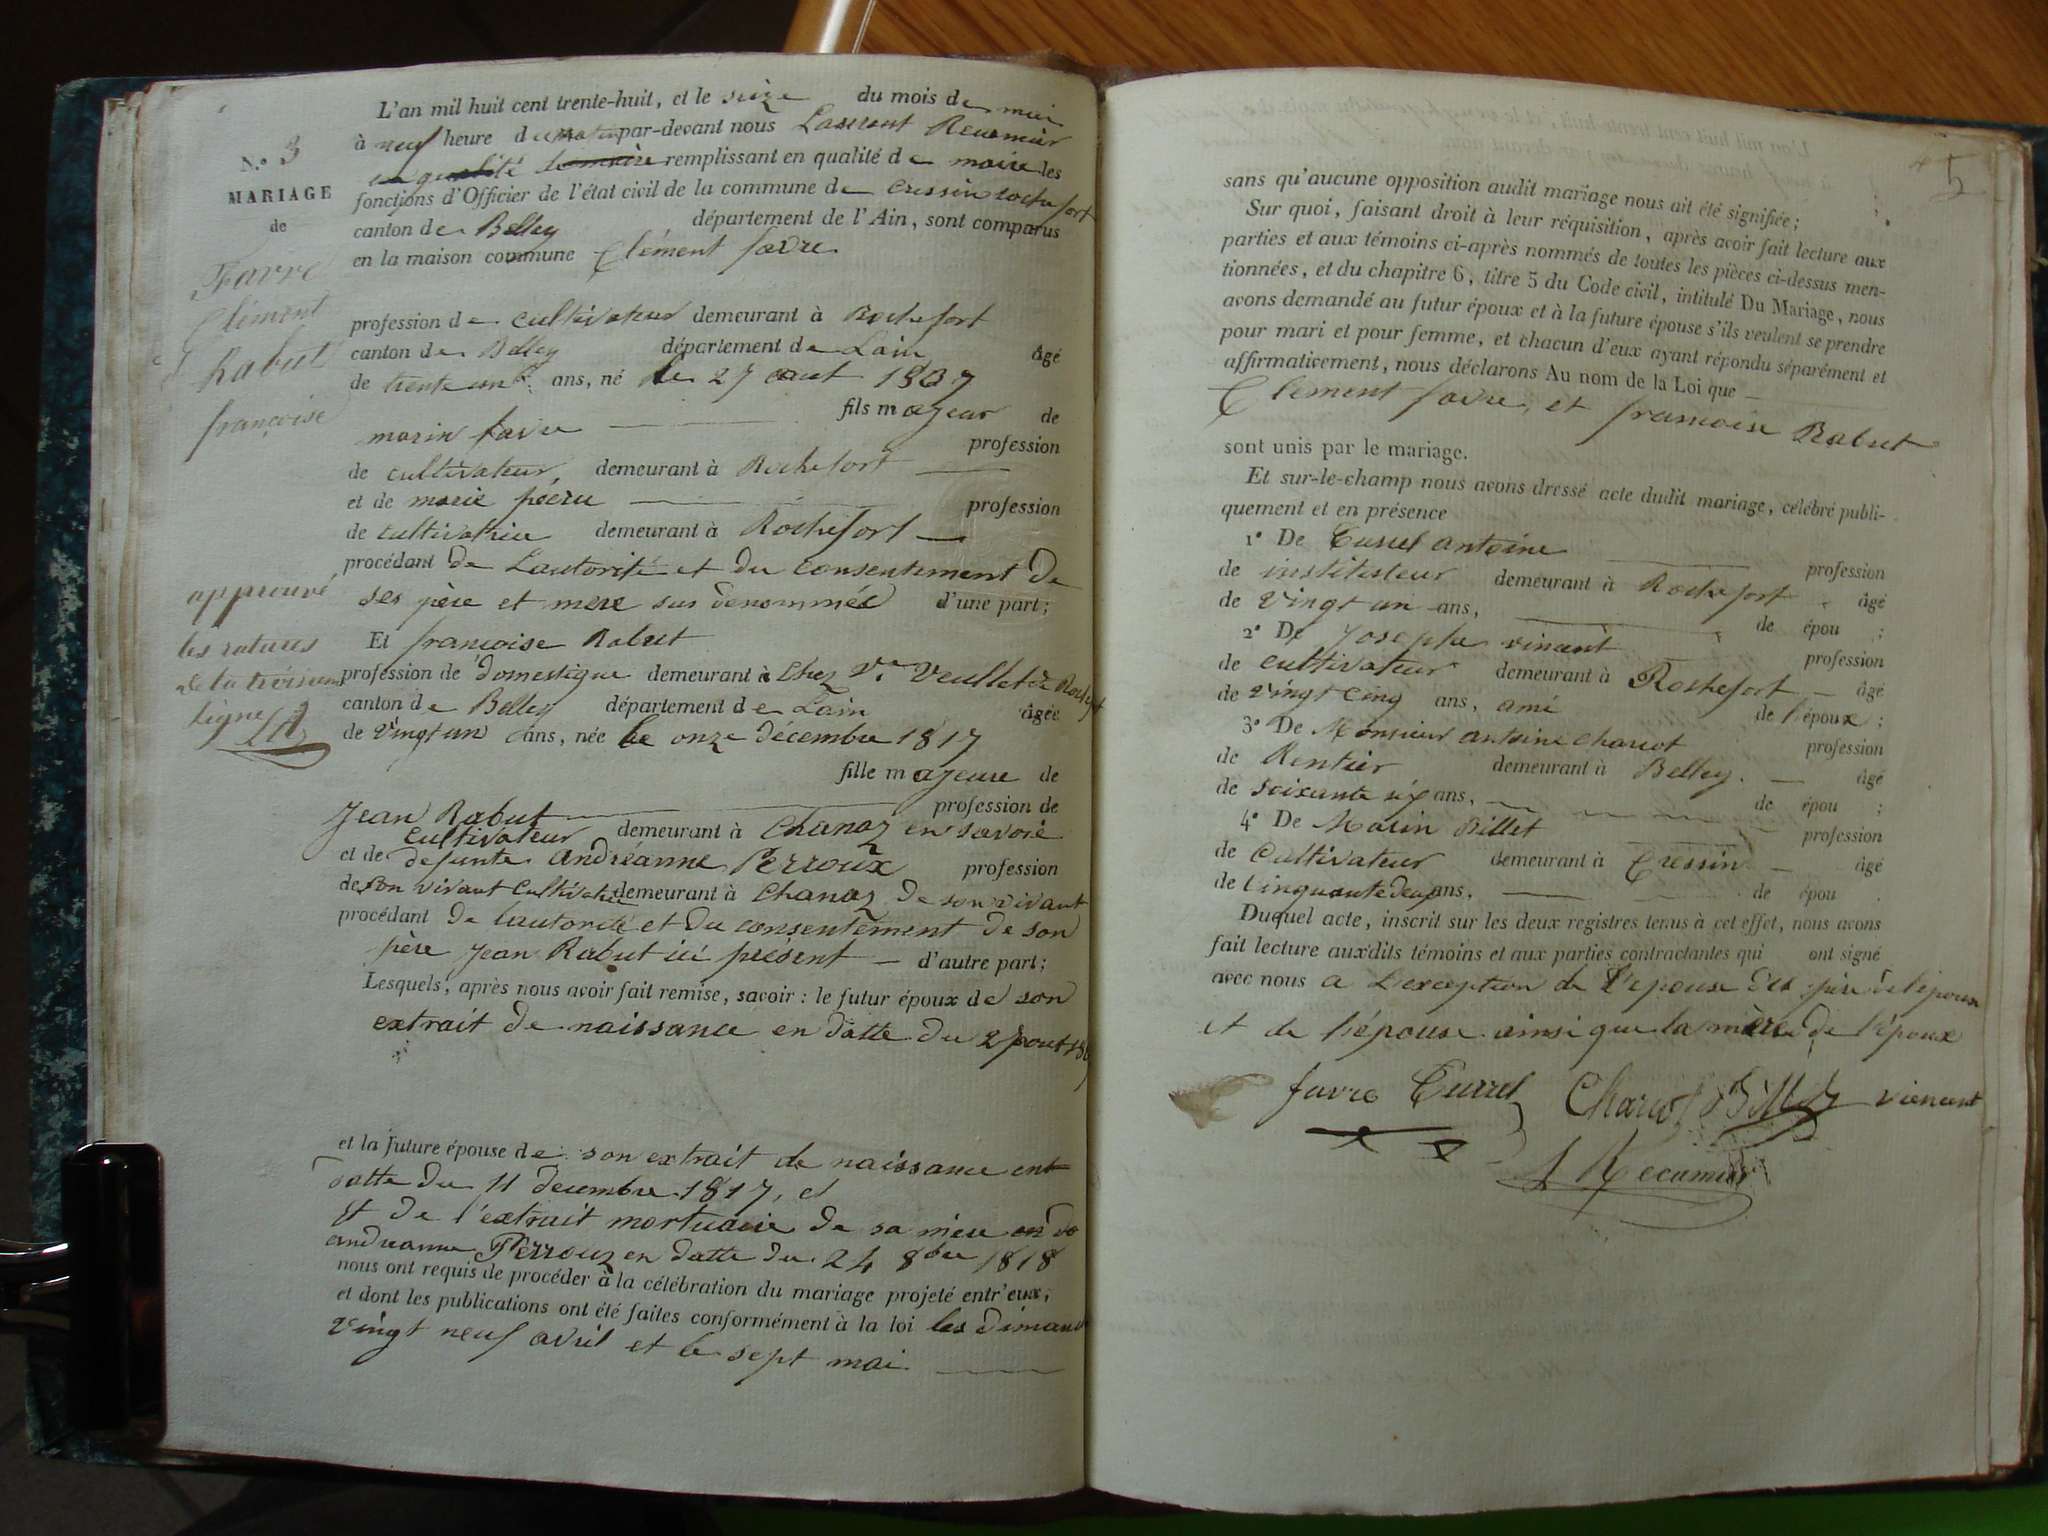 N.° 3
MARIAGE
de
Favre
Clément
& Rabut
françoise
approuvé
les ratures
de la troisieme
ligne
L'an mil huit cent trente-huit, et le seize du mois de mai
à neuf heure du matin par-devant nous Laurent Recamier
en qualité de maire remplissant en qualité de maire les
fonctions d'Officier de l'état civil de la commune de Cressin rochefort
canton de Belley département de l'Ain, sont comparus
en la maison commune Clément favre
profession de cultivateur demeurant à Rochefort
canton de Belley département de Lain âgé
de trente un ans, né le 27 aout 1807
fils majeur de
marin favre profession
de cultivateur, demeurant à Rochefort
et de marie profession
de cultivatrice demeurant à Rochefort
procédant de L'autorité et du consentement de
ses père et mere sus denommés d'une part;
Et françoise Rabut
profession de domestique demeurant à chez Ve Veullet à Rochefort
canton de Belley département de Lain âgée
de vingt un ans, née le onze décembre 1817
fille majeure de
Jean Rabut profession de
cultivateur demeurant à Chanaz en savoie
et de defunte andréanne Perroux profession
de son vivant Cultivatrice demeurant à Chanaz de son vivant
procédant de l'autorité et du consentement de son
père Jean Rabut ici présent d'autre part;
Lesquels, après nous avoir fait remise, savoir: le futur époux de son
extrait de naissance en datte du 27 aout 180
et la future épouse de son extrait de naissance en
datte du 11 decembre 1817, et
et de l'extrait mortuaire de sa mere
andreanne Perroux en datte du 24 8bre 1818
nous ont requis de procéder à la célébration du mariage projeté entr'eux,
et dont les publications ont été faites conformément à la loi les dimanc
vingt neuf avril et le sept mai
5
sans qu'aucune opposition audit mariage nous ait été signifiée;
Sur quoi, faisant droit à leur réquisition, après avoir fait lecture aux
parties et aux témoins ci-après nommés de toutes les pièces ci-dessus men-
tionnées, et du chapitre 6, titre 5 du Code civil, intitulé Du Mariage, nous
avons demandé au futur époux et à la future épouse s'ils veulent se prendre
pour mari et pour femme, et chacun d'eux ayant répondu séparément et
affirmativement, nous déclarons Au nom de la Loi que
Clement favre, et francoise Rabut
sont unis par le mariage.
Et sur-le-champ nous avons dressé acte dudit mariage, célébré publi-
quement et en présence
1° De Currel antoine profession
de instituteur demeurant à Rochefort âgé
de vingt un ans, de épou ;
2° De Josephe vinant profession
de cultivateur demeurant à Rochefort âgé
de vingt cinq ans, ami de l'époux;
3° De Monsieur antoine charcot profession
de Rentier demeurant à Belley. âgé
de soixante six ans, de épou ;
4° De Marin Billet profession
de Cultivateur demeurant à Cressin âgé
de Cinquante deux ans, de épou .
Duquel acte, inscrit sur les deux registres tenus à cet effet, nous avons
fait lecture auxdits témoins et aux parties contractantes qui ont signé
avec nous a L'exception de l'epouse des père de l'époux
et de l'épouse ainsi que la mère de l'époux
favre Currel Charcot Billet vienant
L Recamier